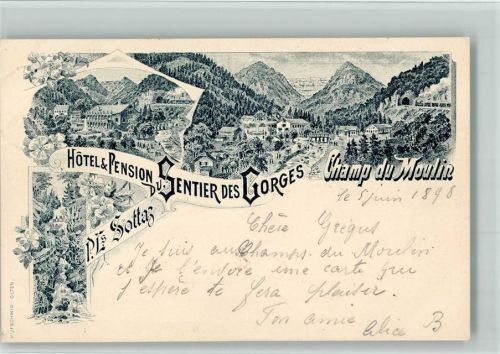 HÔTEL & PENSION DU SENTIER DES GORGES
Champ du Moulin
P. Ls Sottaz
le 5 juin 1898
Chère
Je suis au Champs du Moulin
et je t'envoie une carte qui
j'espère te fera plaisir.
Ton amie
Alice B